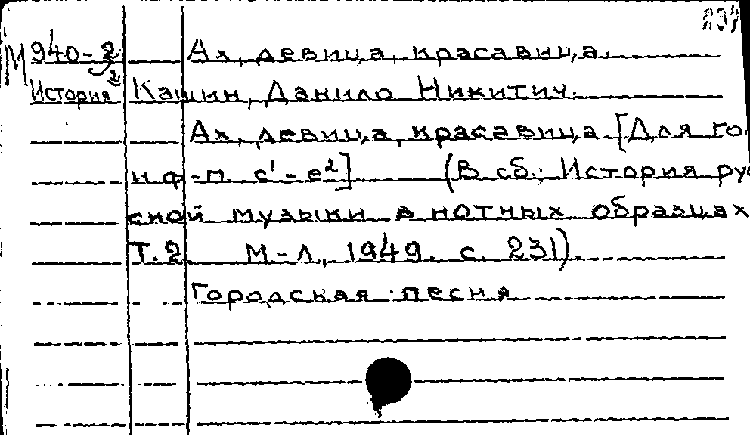 М940-2 Ах, девица, красавица.
2
История Кашин, Данило Никитич.
Ах, девица, красавица. [Для го
и ф-п. с¹-е²] (В сб.: История ру
ской музыки в нотных образцах
Т.2. М-Л, 1949. с. 231).
Городская песня